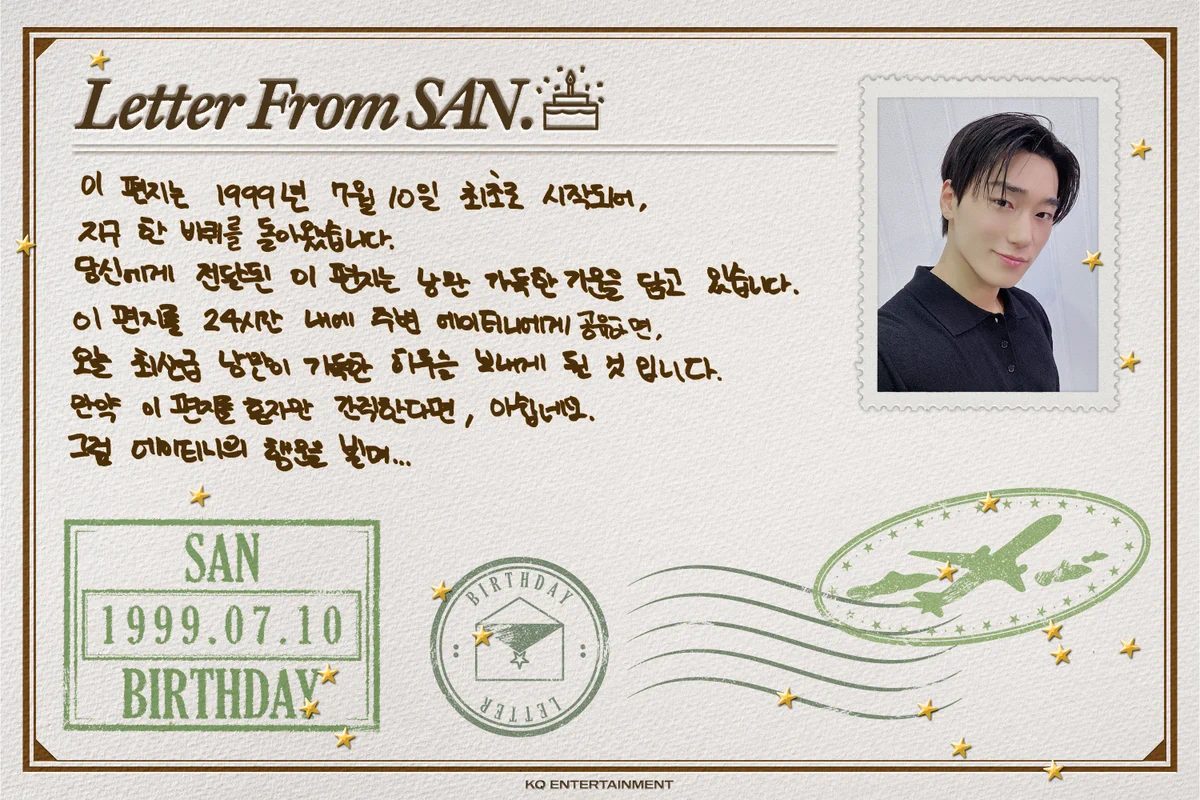 Letter From SAN.
이 편지는 1999년 7월 10일 최초로 시작되어,
지구 한 바퀴를 돌아왔습니다.
당신에게 전달된 이 편지는 낭만 가득한 기운을 담고 있습니다.
이 편지를 24시간 내에 주변 에이티니에게 공유하면,
오늘 최산급 낭만이 가득한 하루를 보내게 될 것 입니다.
만약 이 편지를 혼자만 간직한다면, 아쉽네요.
그럼 에이티니의 행운을 빌며...
SAN
1999.07.10
BIRTHDAY
BIRTHDAY
LETTER
KQ ENTERTAINMENT